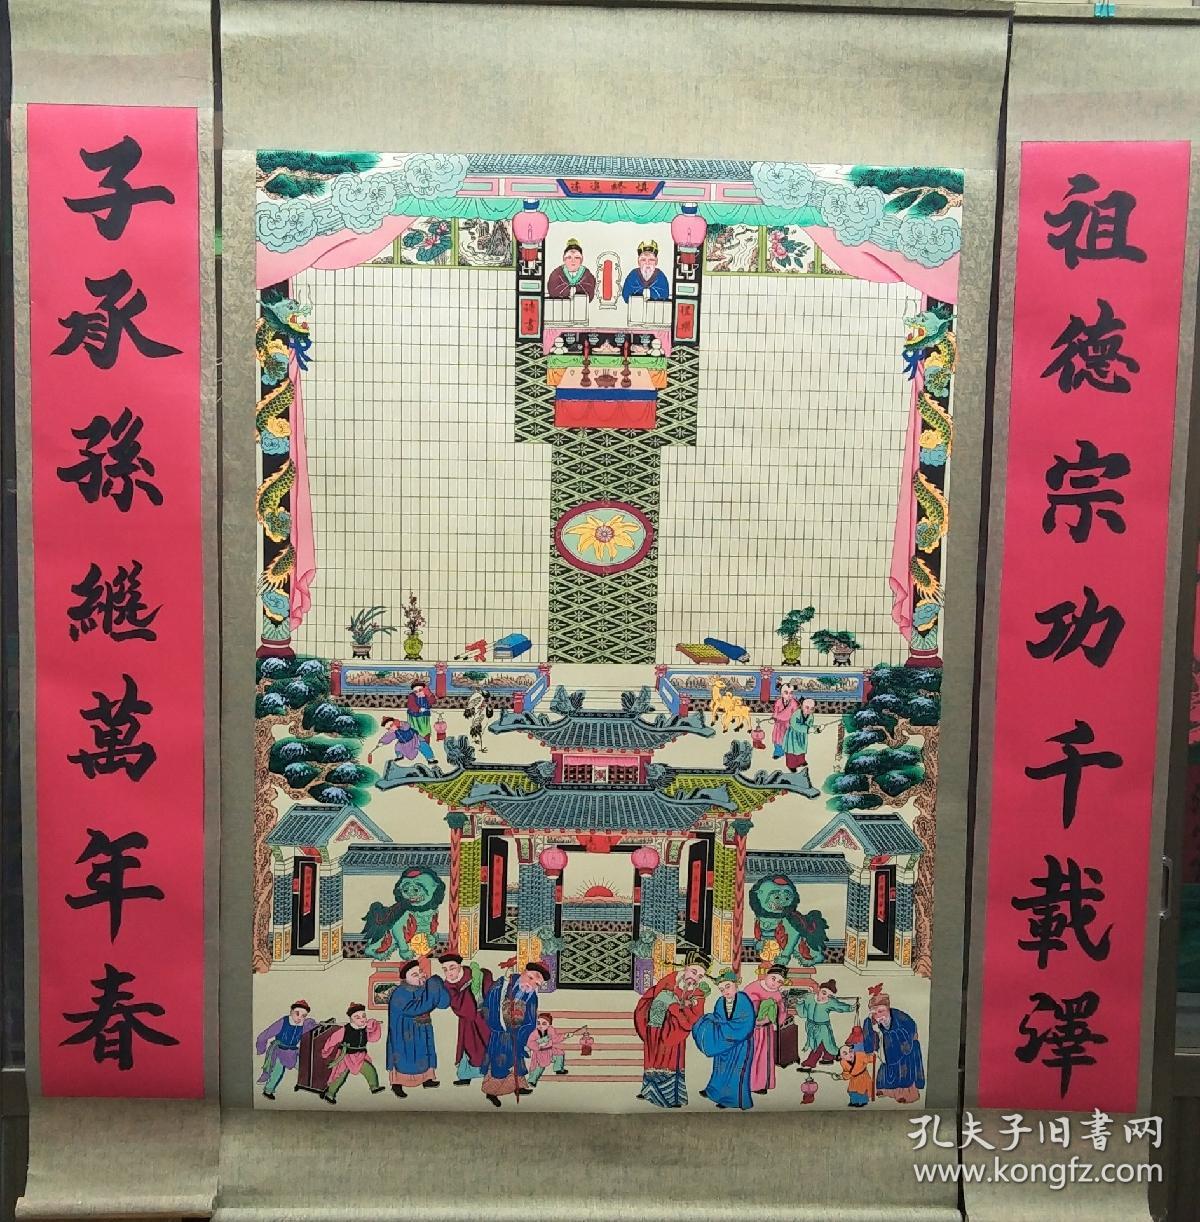 祖德宗功千載澤
子承孫繼萬年春
慎終追遠
禮樂
詩書
孔夫子旧書网
www.kongfz.com